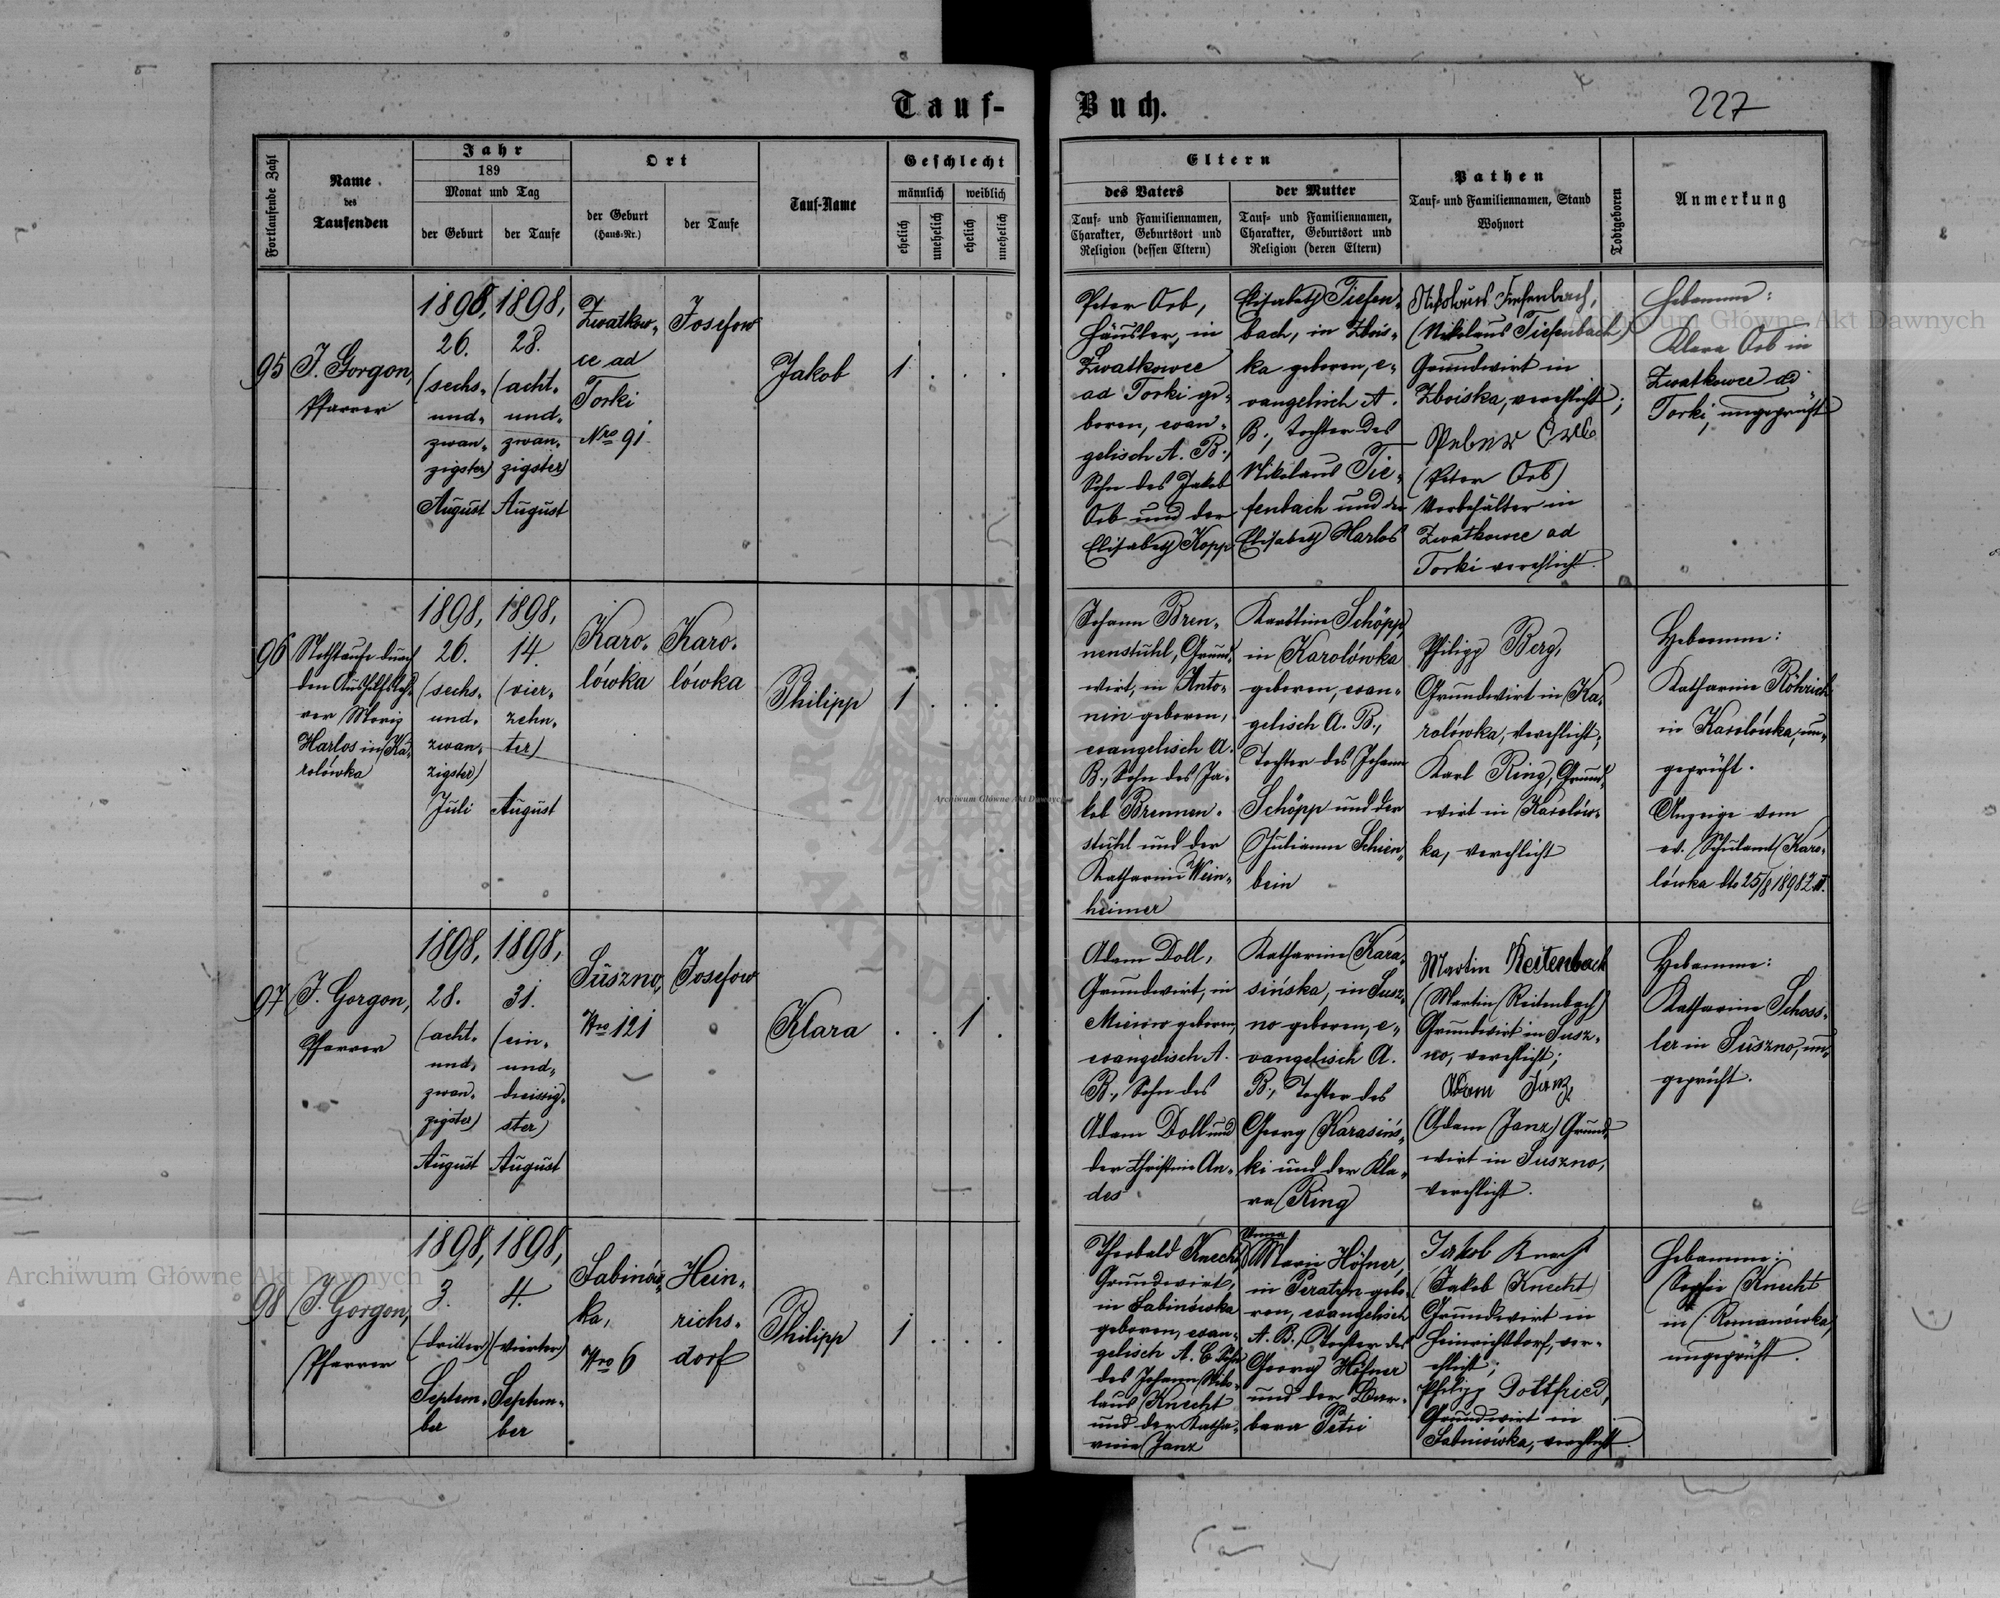 Tauf-
Buch.
227
Fortlaufende Zahl
Name
des
Taufenden
Jahr
189
Monat und Tag
der Geburt
der Taufe
Ort
der Geburt
(Haus-Nr.)
der Taufe
Tauf-Name
Geschlecht
männlich
weiblich
ehelich
unehelich
ehelich
unehelich
Eltern
des Vaters
Tauf- und Familiennamen,
Charakter, Geburtsort und
Religion (dessen Eltern)
der Mutter
Tauf- und Familiennamen,
Charakter, Geburtsort und
Religion (deren Eltern)
Pathen
Tauf- und Familiennamen, Stand
Wohnort
Todtgeboren
Anmerkung
95
J. Gorgon,
Pfarrer
1898,
26.
(sechs-
und-
zwan-
zigster)
August
1898,
28.
(acht-
und-
zwan-
zigster)
August
Zwatkow-
ce ad
Torki
Nro 91
Josefow
Jakob
1 . . .
Peter Orb,
Häusler, in
Zwatkowce
ad Torki ge-
boren, evan-
gelisch A. B.,
Sohn des Jakob
Orb und der
Elisabeth Kopp
Elisabeth Tiefen-
bach, in Zbois-
ka geboren, e-
vangelisch A.
B., Tochter des
Nikolaus Tie-
fenbach und der
Elisabeth Harlos
Nikolaus Tiefenbach,
(Nikolaus Tiefenbach)
Grundwirt in
Zboiska, verehlicht;
Peter Orb
(Peter Orb)
Vorbehälter in
Zwatkowce ad
Torki verehlicht.
Hebamme:
Klara Orb in
Zwatkowce ad
Torki, ungeprüft
96
Nothtaufe durch
den Aushilfsleh-
rer Moriz
Harlos in Ka-
rolówka
1898,
26.
(sechs-
und-
zwan-
zigster)
Juli
1898,
14.
(vier-
zehn-
ter)
August
Karo-
lówka
Karo-
lówka
Philipp
1 . . .
Johann Bren-
nenstuhl, Grund-
wirt, in Anto-
nin geboren,
evangelisch A.
B., Sohn des Ja-
kob Brennen-
stuhl und der
Katharina Wein-
heimer
Karoline Schöpp
in Karolówka
geboren, evan-
gelisch A. B.,
Tochter des Johann
Schöpp und der
Julianne Schien-
bein
Philipp Berg,
Grundwirt in Ka-
rolówka, verehlicht;
Karl Ring, Grund-
wirt in Karolów-
ka, verehlicht
Hebamme:
Katharina Röhrich
in Karolówka, un-
geprüft.
Anzeige vom
ev. Schulamt Karo-
lówka dto 25/8 1898
97
J. Gorgon,
Pfarrer
1898,
28.
(acht-
und-
zwan-
zigster)
August
1898,
31.
(ein-
und-
dreissig-
ster)
August
Suszno,
Nro 121
Josefow
Klara
. . 1 .
Adam Doll,
Grundwirt, in
Mierow geboren,
evangelisch A.
B., Sohn des
Adam Doll und
der Christine An-
des
Katharina Kara-
sińska, in Susz-
no geboren, e-
vangelisch A.
B., Tochter des
Georg Karasińs-
ki und der Kla-
ra Ring
Martin Reitenbach
(Martin Reitenbach)
Grundwirt in Susz-
no, verehlicht;
Adam Janz,
(Adam Janz) Grund-
wirt in Suszno,
verehlicht.
Hebamme:
Katharine Schoss-
ler in Suszno, un-
geprüft.
98
J. Gorgon,
Pfarrer
1898,
3.
(dritter)
Septem-
ber
1898,
4.
(vierter)
Septem-
ber
Sabinów-
ka,
Nro 6
Hein-
richs-
dorf
Philipp
1 . . .
Theobald Knecht,
Grundwirt,
in Sabinówka
geboren, evan-
gelisch A. B. Sohn
des Johann Niko-
laus Knecht
und der Katha-
rina Janz
Anna
Marie Höfner,
in Peratyn gebo-
ren, evangelisch
A. B., Tochter des
Georg Höfner
und der Bar-
bara Petri
Jakob Knecht
(Jakob Knecht)
Grundwirt in
Heinrichsdorf, ver-
ehlicht;
Philipp Gottfried,
Grundwirt in
Sabinówka, verehlicht.
Hebamme:
Sophie Knecht
in Romanówka,
ungeprüft.
Archiwum Główne Akt Dawnych
Archiwum Główne Akt Dawnych
Archiwum Główne Akt Dawnych